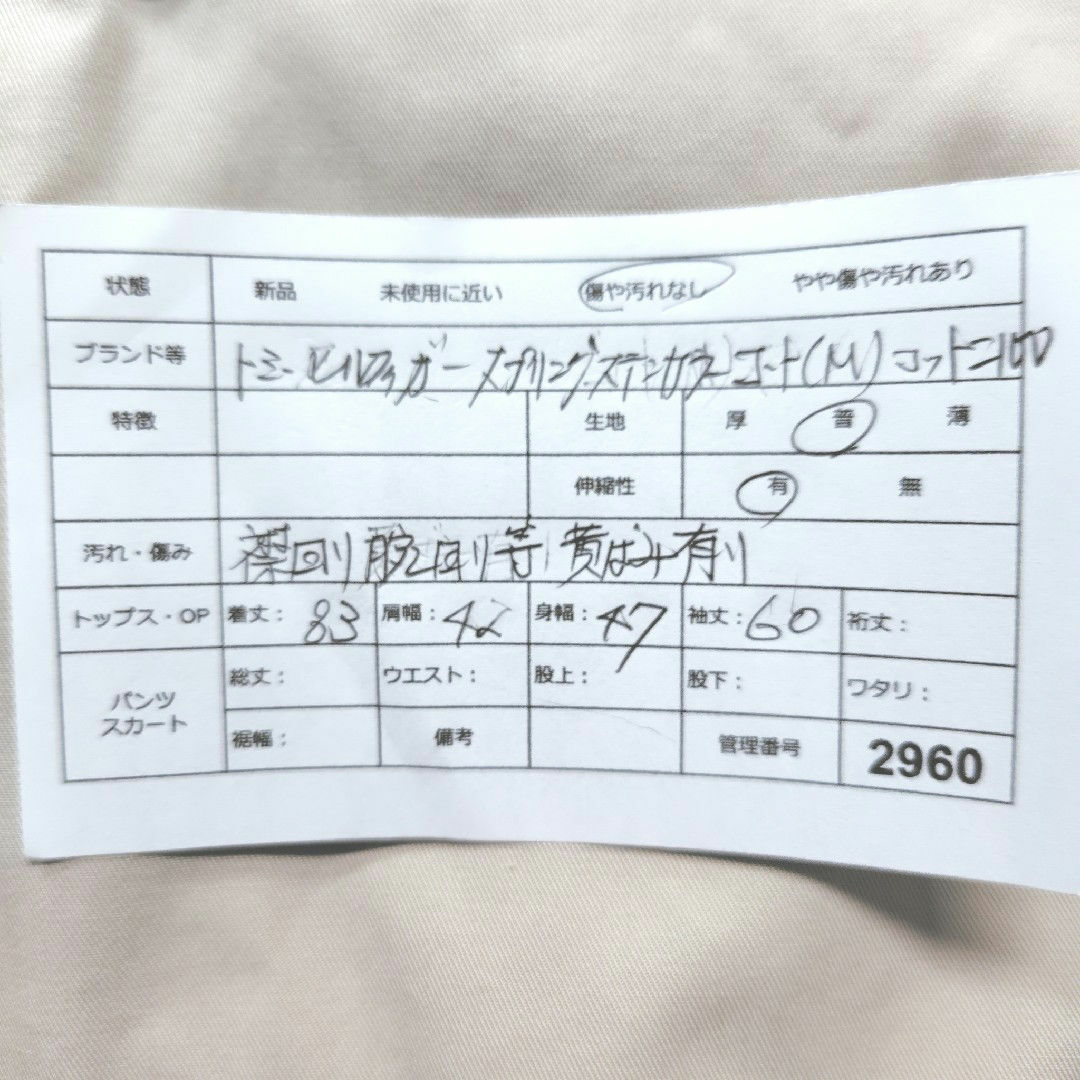 状態 新品 未使用に近い 傷や汚れなし やや傷や汚れあり
ブランド等 トミーヒルフィガー スプリングステンカラーコート(M) コットン100
特徴 生地 厚 普 薄
伸縮性 有 無
汚れ・傷み 襟回り 腕回り等 黄ばみ有り
トップス・OP 着丈: 83 肩幅: 42 身幅: 47 袖丈: 60 裄丈:
パンツ 総丈: ウエスト: 股上: 股下: ワタリ:
スカート 裾幅: 備考 管理番号 2960